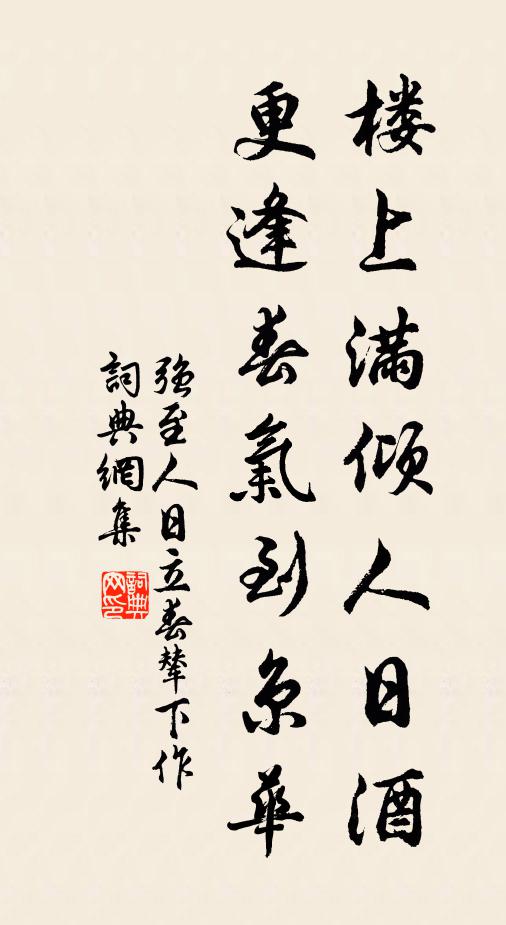 楼上满倾人日酒
更逢春氣到京華
强至人日立春輦下作
詞典網集
詞典网印